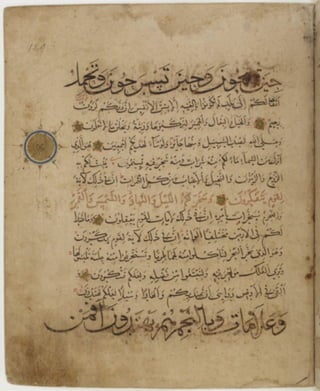 حين تريحون وحين تسرحون وتحمل
أثقالكم إلى بلد لم تكونوا بالغيه إلا بشق الأنفس إن ربكم لرؤف
رحيم والخيل والبغال والحمير لتركبوها وزينة ويخلق ما لا تعلمون
وعلى الله قصد السبيل ومنها جائر ولو شاء لهديكم أجمعين هو الذي
أنزل من السماء ماء لكم منه شراب ومنه شجر فيه تسيمون ينبت لكم به
الزرع والزيتون والنخيل والأعناب ومن كل الثمرات إن في ذلك لآية
لقوم يتفكرون وسخر لكم الليل والنهار والشمس والقمر
والنجوم مسخرات بأمره إن في ذلك لآيات لقوم يعقلون وما ذرأ
لكم في الأرض مختلفا ألوانه إن في ذلك لآية لقوم يذكرون
وهو الذي سخر البحر لتأكلوا منه لحما طريا وتستخرجوا منه حلية تلبسونها
وترى الفلك مواخر فيه ولتبتغوا من فضله ولعلكم تشكرون وألقى
في الأرض رواسي أن تميد بكم وأنهارا وسبلا لعلكم تهتدون
وعلامات وبالنجم هم يهتدون أفمن